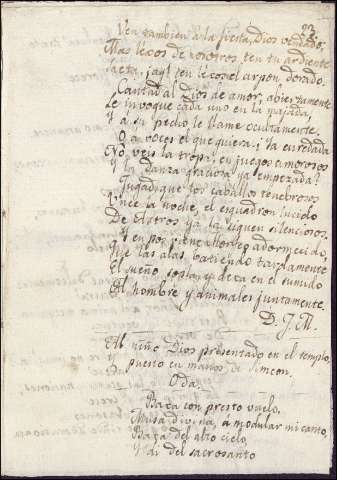 Ven tambien á la fiesta, Dios vendado,
Mas lexos de nosotros ten tu ardiente
acta, ¡ay! ten lexos el arpon dorado.
Cantad al Dios de amor, abiertamente
Le invoque cada uno en la majada,
Y á su pecho le llame ocultamente.
O á voces el que quiera: ¡Ya enredada
No veis la tropa, en juegos amorosos
Y la danza graciosa ya empezada?
Jugad, que los caballos tenebrosos
Unce la noche, el esquadron lucido
De Astros ya la siguen silenciosos.
Y en pos viene Morfeo adormecido,
que las alas batiendo tardamente
El sueño sopla, y dexa en él sumido
Al hombre y animales juntamente.
D. J. M.
Al niño Dios presentado en el templo,
y puesto en manos de Simeon.
Oda.
Baxa con presto vuelo,
Musa divina, a modular mi canto,
Baxa del alto cielo,
Y di del sacrosanto